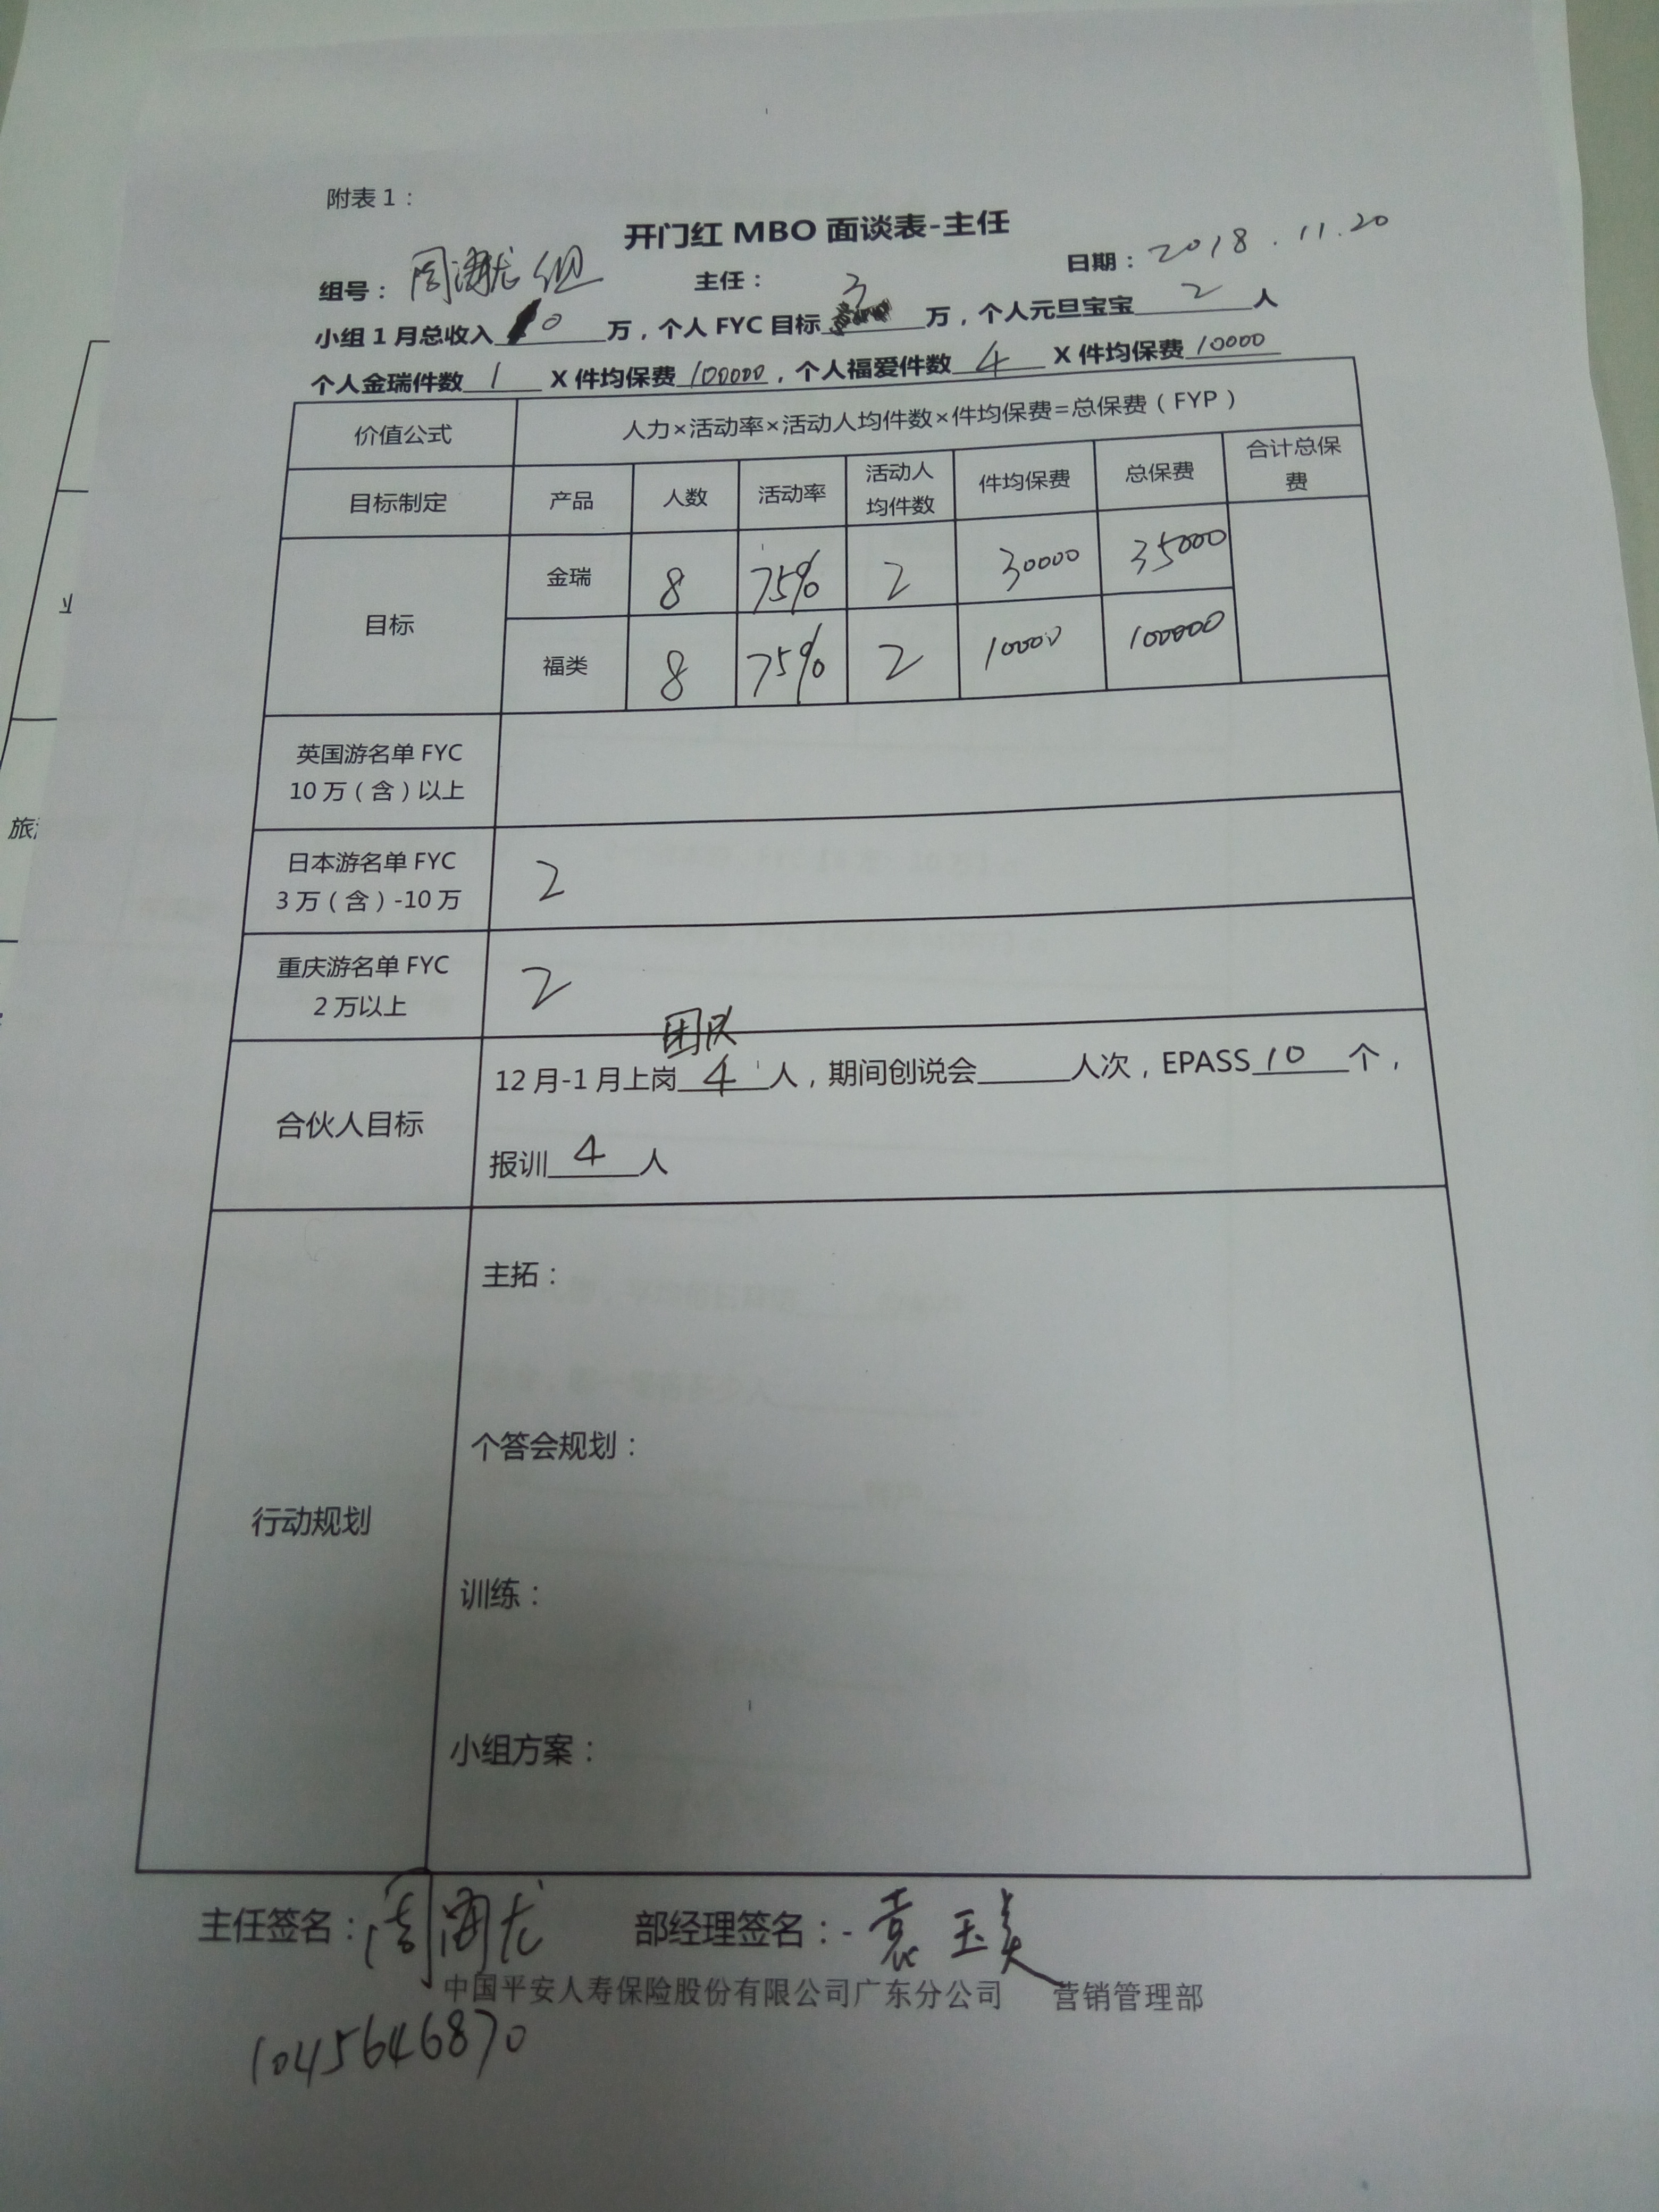 附表1：
开门红 MBO 面谈表-主任
组号： 周 组 主任： 日期：2018.11.20
小组1月总收入 0 万，个人FYC目标 3 万，个人元旦宝宝 2 人
个人金瑞件数 1 X件均保费 100000，个人福爱件数 4 X件均保费 10000
价值公式 人力×活动率×活动人均件数×件均保费=总保费（FYP）
目标制定 产品 人数 活动率 活动人均件数 件均保费 总保费 合计总保费
目标
金瑞 8 75% 2 30000 35000
福类 8 75% 2 10000 100000
英国游名单 FYC
10万（含）以上
日本游名单 FYC
3万（含）-10万
2
重庆游名单 FYC
2万以上
2
团队
合伙人目标
12月-1月上岗 4 人，期间创说会______人次，EPASS 10 个，
报训 4 人
行动规划
主拓：
个答会规划：
训练：
小组方案：
主任签名：周 龙 部经理签名：-袁玉美
中国平安人寿保险股份有限公司广东分公司 营销管理部
1045646870
业
旅